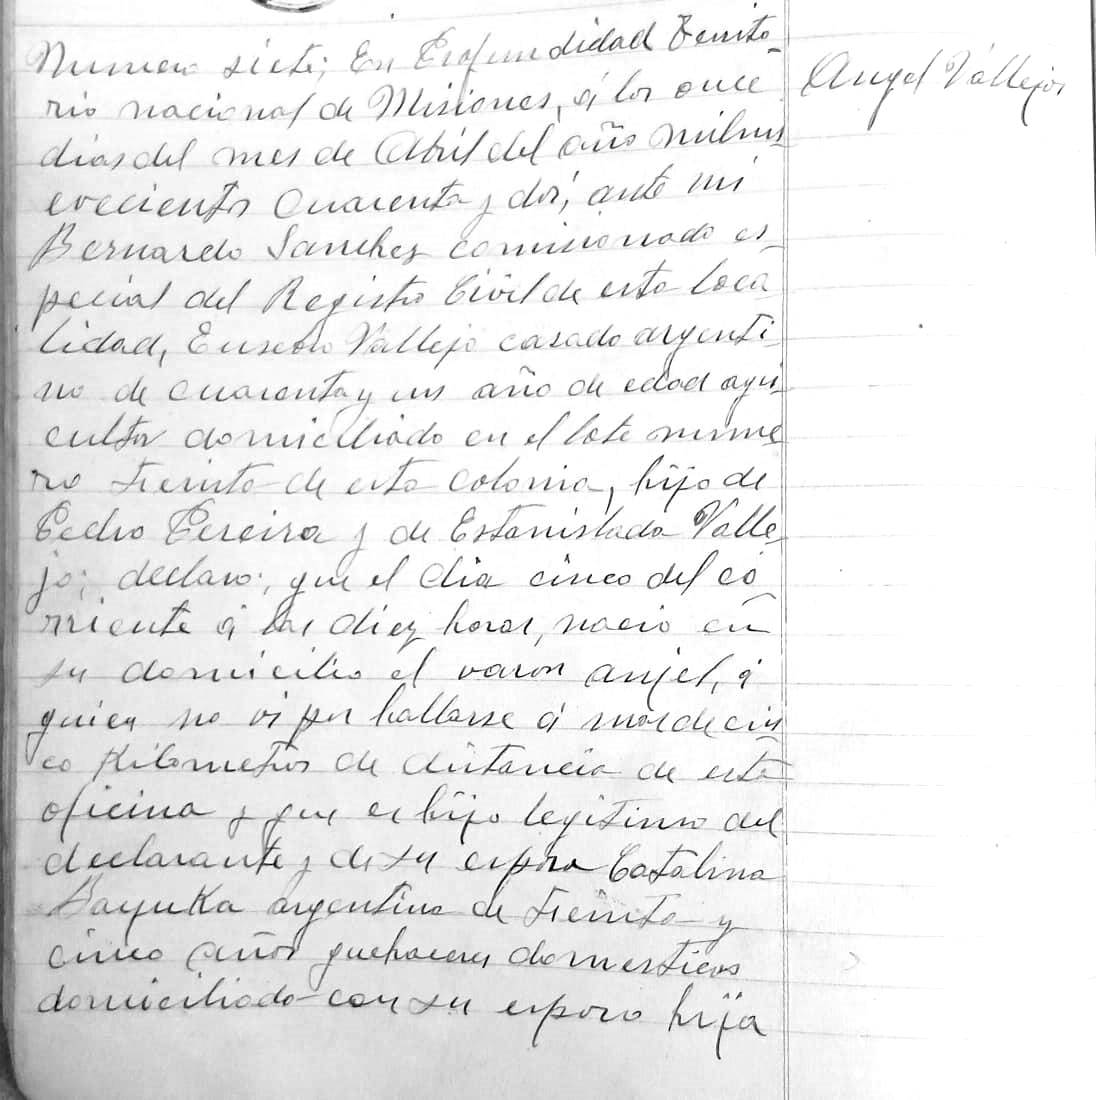 Numero siete; En Profundidad Territo-
rio nacional de Misiones, á los once
dias del mes de Abril del año milnu_
evecientos cuarenta y dos, ante mi
Bernardo Sanchez comisionado es_
pecial del Registro Civil de esta loca
lidad, Eusebio Vallejo casado argenti_
no de cuarenta y un año de edad agri_
cultor domiciliado en el lote nume
ro treinta de esta colonia, hijo de
Pedro Pereira y de Estanislada Valle_
jo; declaro; que el dia cinco del co
rriente á las diez horas, nacio en
su domicilio el varon anjel, á
quien no vi por hallarse á mas de cin_
co Kilometros de distancia de esta
oficina y que es hijo legitimo del
declarante y de su esposa Catalina
Bayuka argentina de treinta y
cinco años quehaceres domesticos
domiciliado con su esposo hija
Angel Vallejos